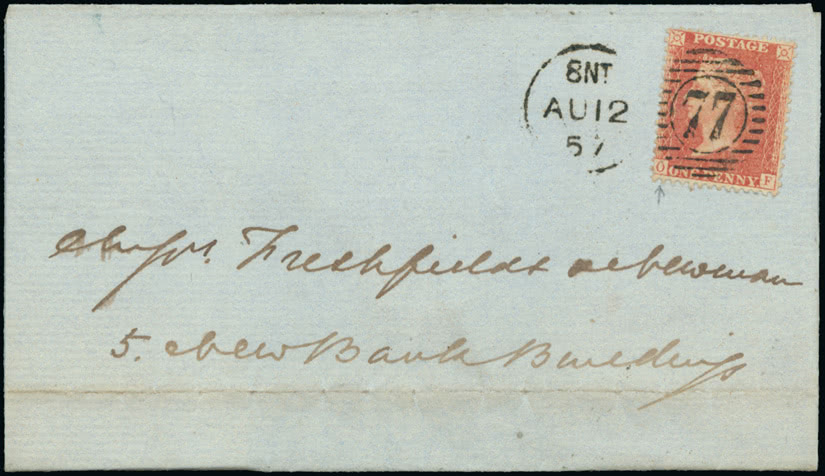 POSTAGE
8NT
AU12
57
77
O ONE PENNY F
Freshfields & Newman
5. New Bank Buildings